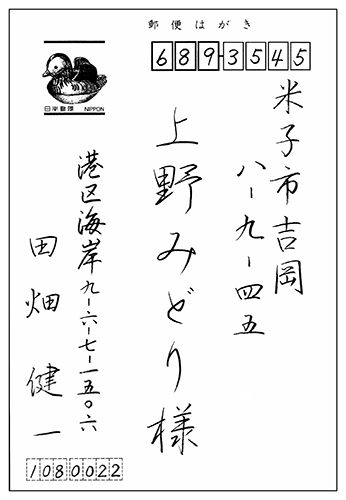 郵便はがき
689-3545
日本郵便 NIPPON
米子市吉岡
八-九-四五
上野みどり様
港区海岸九-六-七-一五〇六
田畑健一
1080022